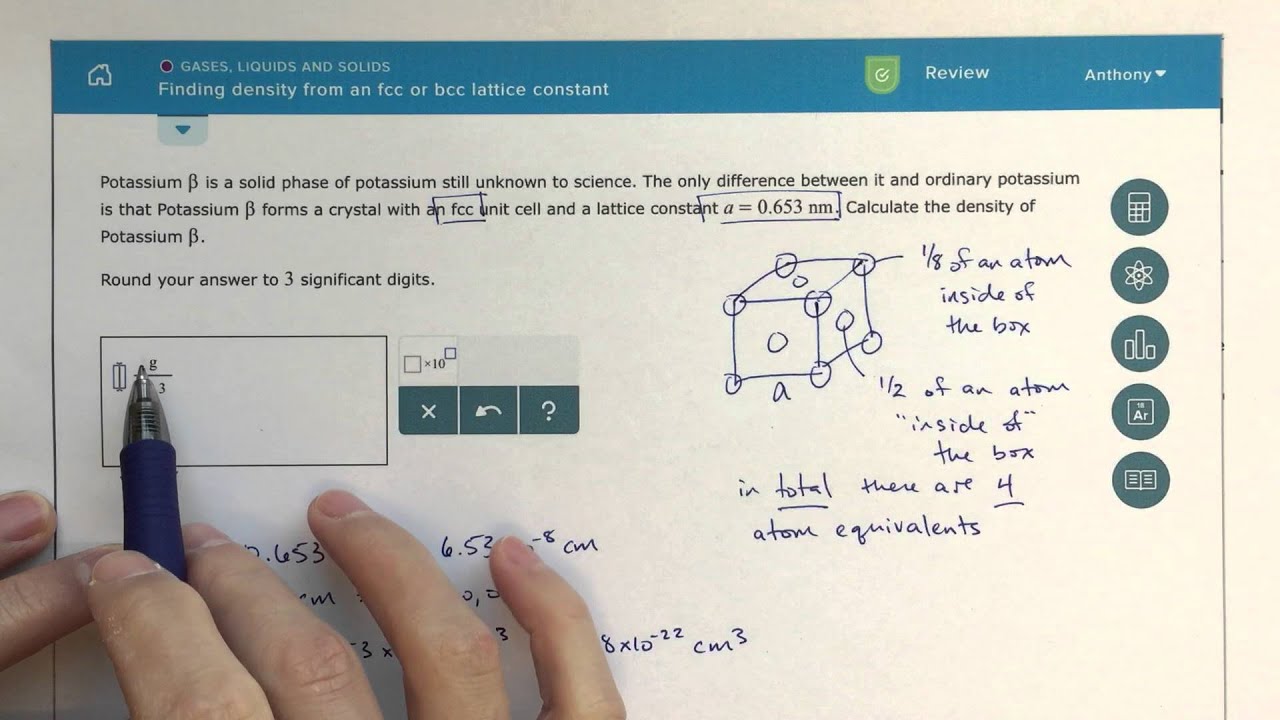 GASES, LIQUIDS AND SOLIDS
Finding density from an fcc or bcc lattice constant
Review
Anthony
Potassium β is a solid phase of potassium still unknown to science. The only difference between it and ordinary potassium
is that Potassium β forms a crystal with an fcc unit cell and a lattice constant a = 0.653 nm. Calculate the density of
Potassium β.
Round your answer to 3 significant digits.
1/8 of an atom
inside of
the box
g
3
□×10□
× ?
a
1/2 of an atom
"inside of"
the box
18
Ar
in total there are 4
atom equivalents
0.653 6.53 -8 cm
cm
-3 × 3 8×10-22 cm3